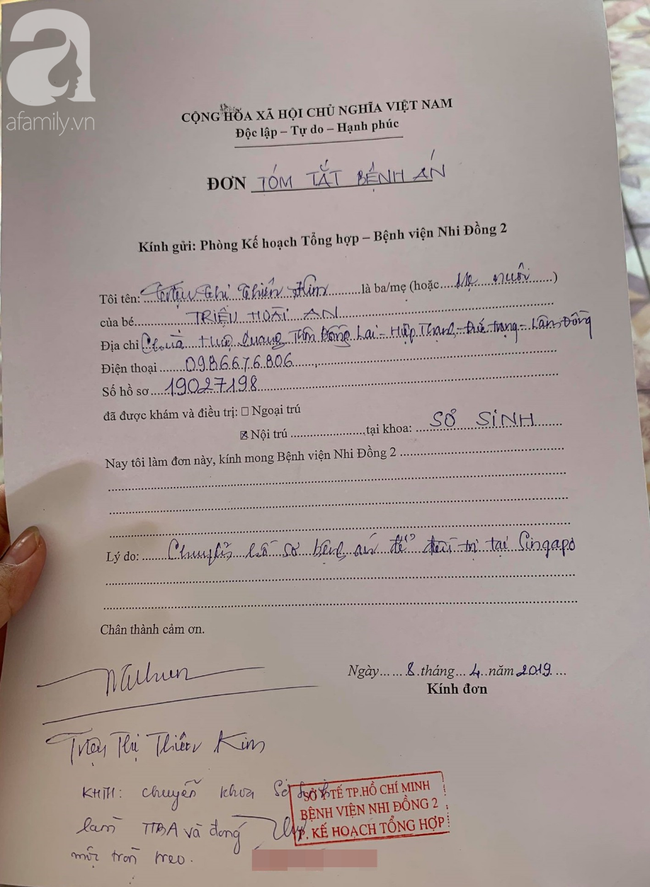 a
afamily.vn
CỘNG HÒA XÃ HỘI CHỦ NGHĨA VIỆT NAM
Độc lập – Tự do – Hạnh phúc
ĐƠN TÓM TẮT BỆNH ÁN
Kính gửi: Phòng Kế hoạch Tổng hợp – Bệnh viện Nhi Đồng 2
Tôi tên: Triệu Thị Thiên Kim là ba/mẹ (hoặc mẹ nuôi)
của bé TRIỆU HOÀI AN
Địa chỉ Chùa Quang Thôn Đồng Lai - Hiệp Thạnh - Đức Trọng - Lâm Đồng
Điện thoại 0986676806
Số hồ sơ 19027198
đã được khám và điều trị: ☐ Ngoại trú
☒ Nội trú, tại khoa: SƠ SINH
Nay tôi làm đơn này, kính mong Bệnh viện Nhi Đồng 2
Lý do: Chuyển hồ sơ bệnh án để điều trị tại Singapo
Chân thành cảm ơn.
Ngày 8 tháng 4 năm 2019
Kính đơn
Triệu Thị Thiên Kim
KHTH: chuyển khoa Sơ sinh
làm TTBA và đóng
mộc tròn treo.
SỞ Y TẾ TP.HỒ CHÍ MINH
BỆNH VIỆN NHI ĐỒNG 2
P. KẾ HOẠCH TỔNG HỢP